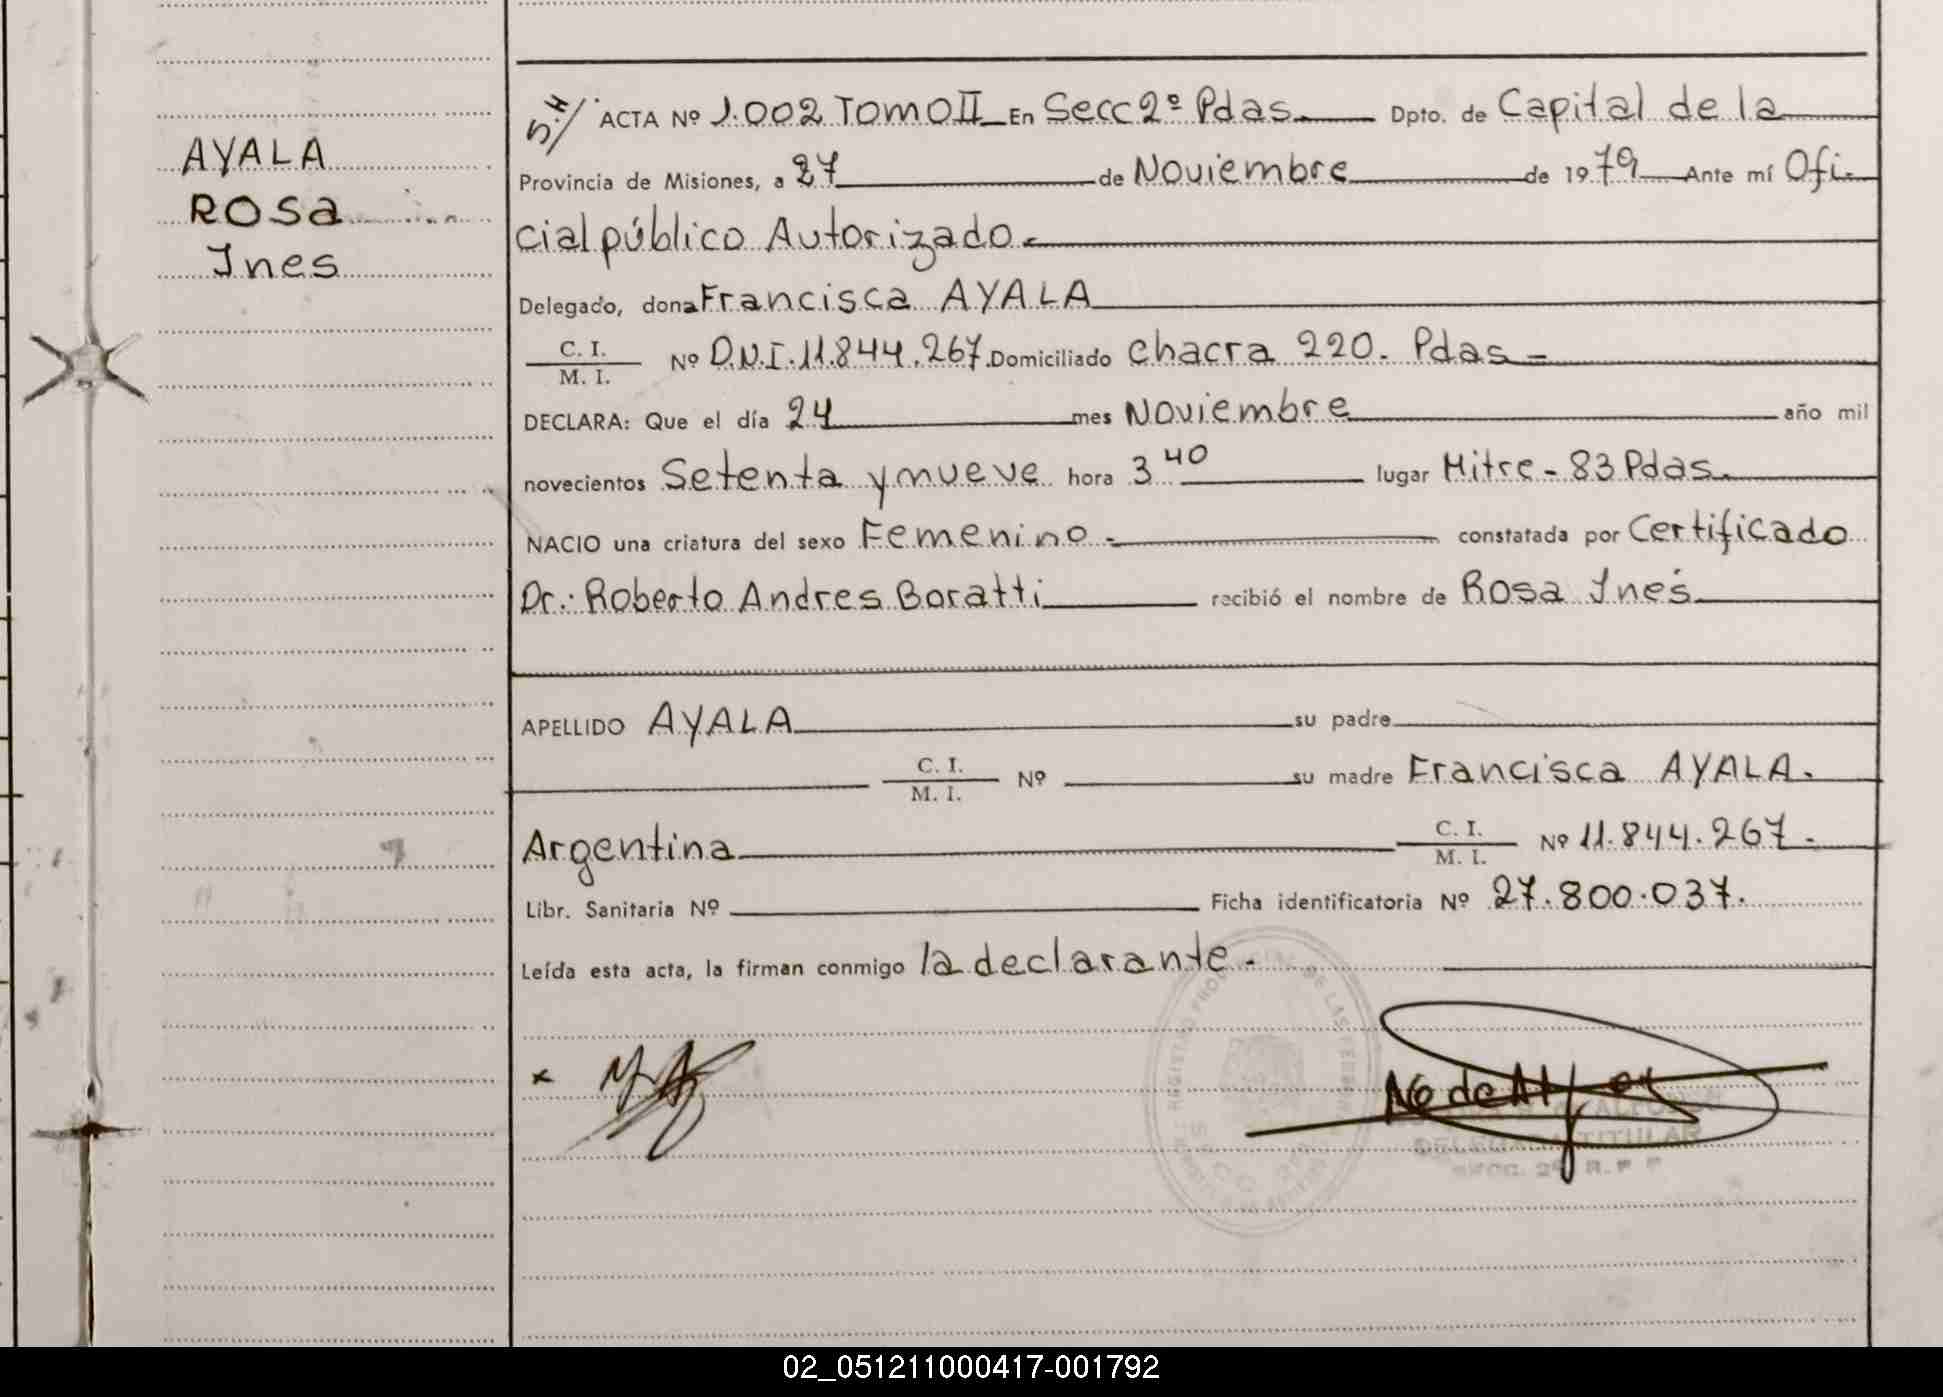 AYALA
ROSa
Ines
S.H/ ACTA Nº 1.002 TOMO II En Secc 2º Pdas. Dpto. de Capital de la
Provincia de Misiones, a 27 de Noviembre de 1979 Ante mí Ofi-
cial público Autorizado.
Delegado, dona Francisca AYALA
C. I. / M. I. Nº D.N.I. 11.844.267. Domiciliado chacra 220. Pdas -
DECLARA: Que el día 24 mes Noviembre año mil
novecientos Setenta y nueve hora 3 40 lugar Mitre - 83 Pdas.
NACIO una criatura del sexo Femenino - constatada por Certificado
Dr. Roberto Andres Boratti recibió el nombre de Rosa Ines
APELLIDO AYALA su padre
C. I. / M. I. Nº su madre Francisca AYALA.
Argentina C. I. / M. I. Nº 11.844.267.-
Libr. Sanitaria Nº Ficha identificatoria Nº 27.800.037.
Leída esta acta, la firman conmigo la declarante.-
DELEGADA TITULAR
02_051211000417-001792